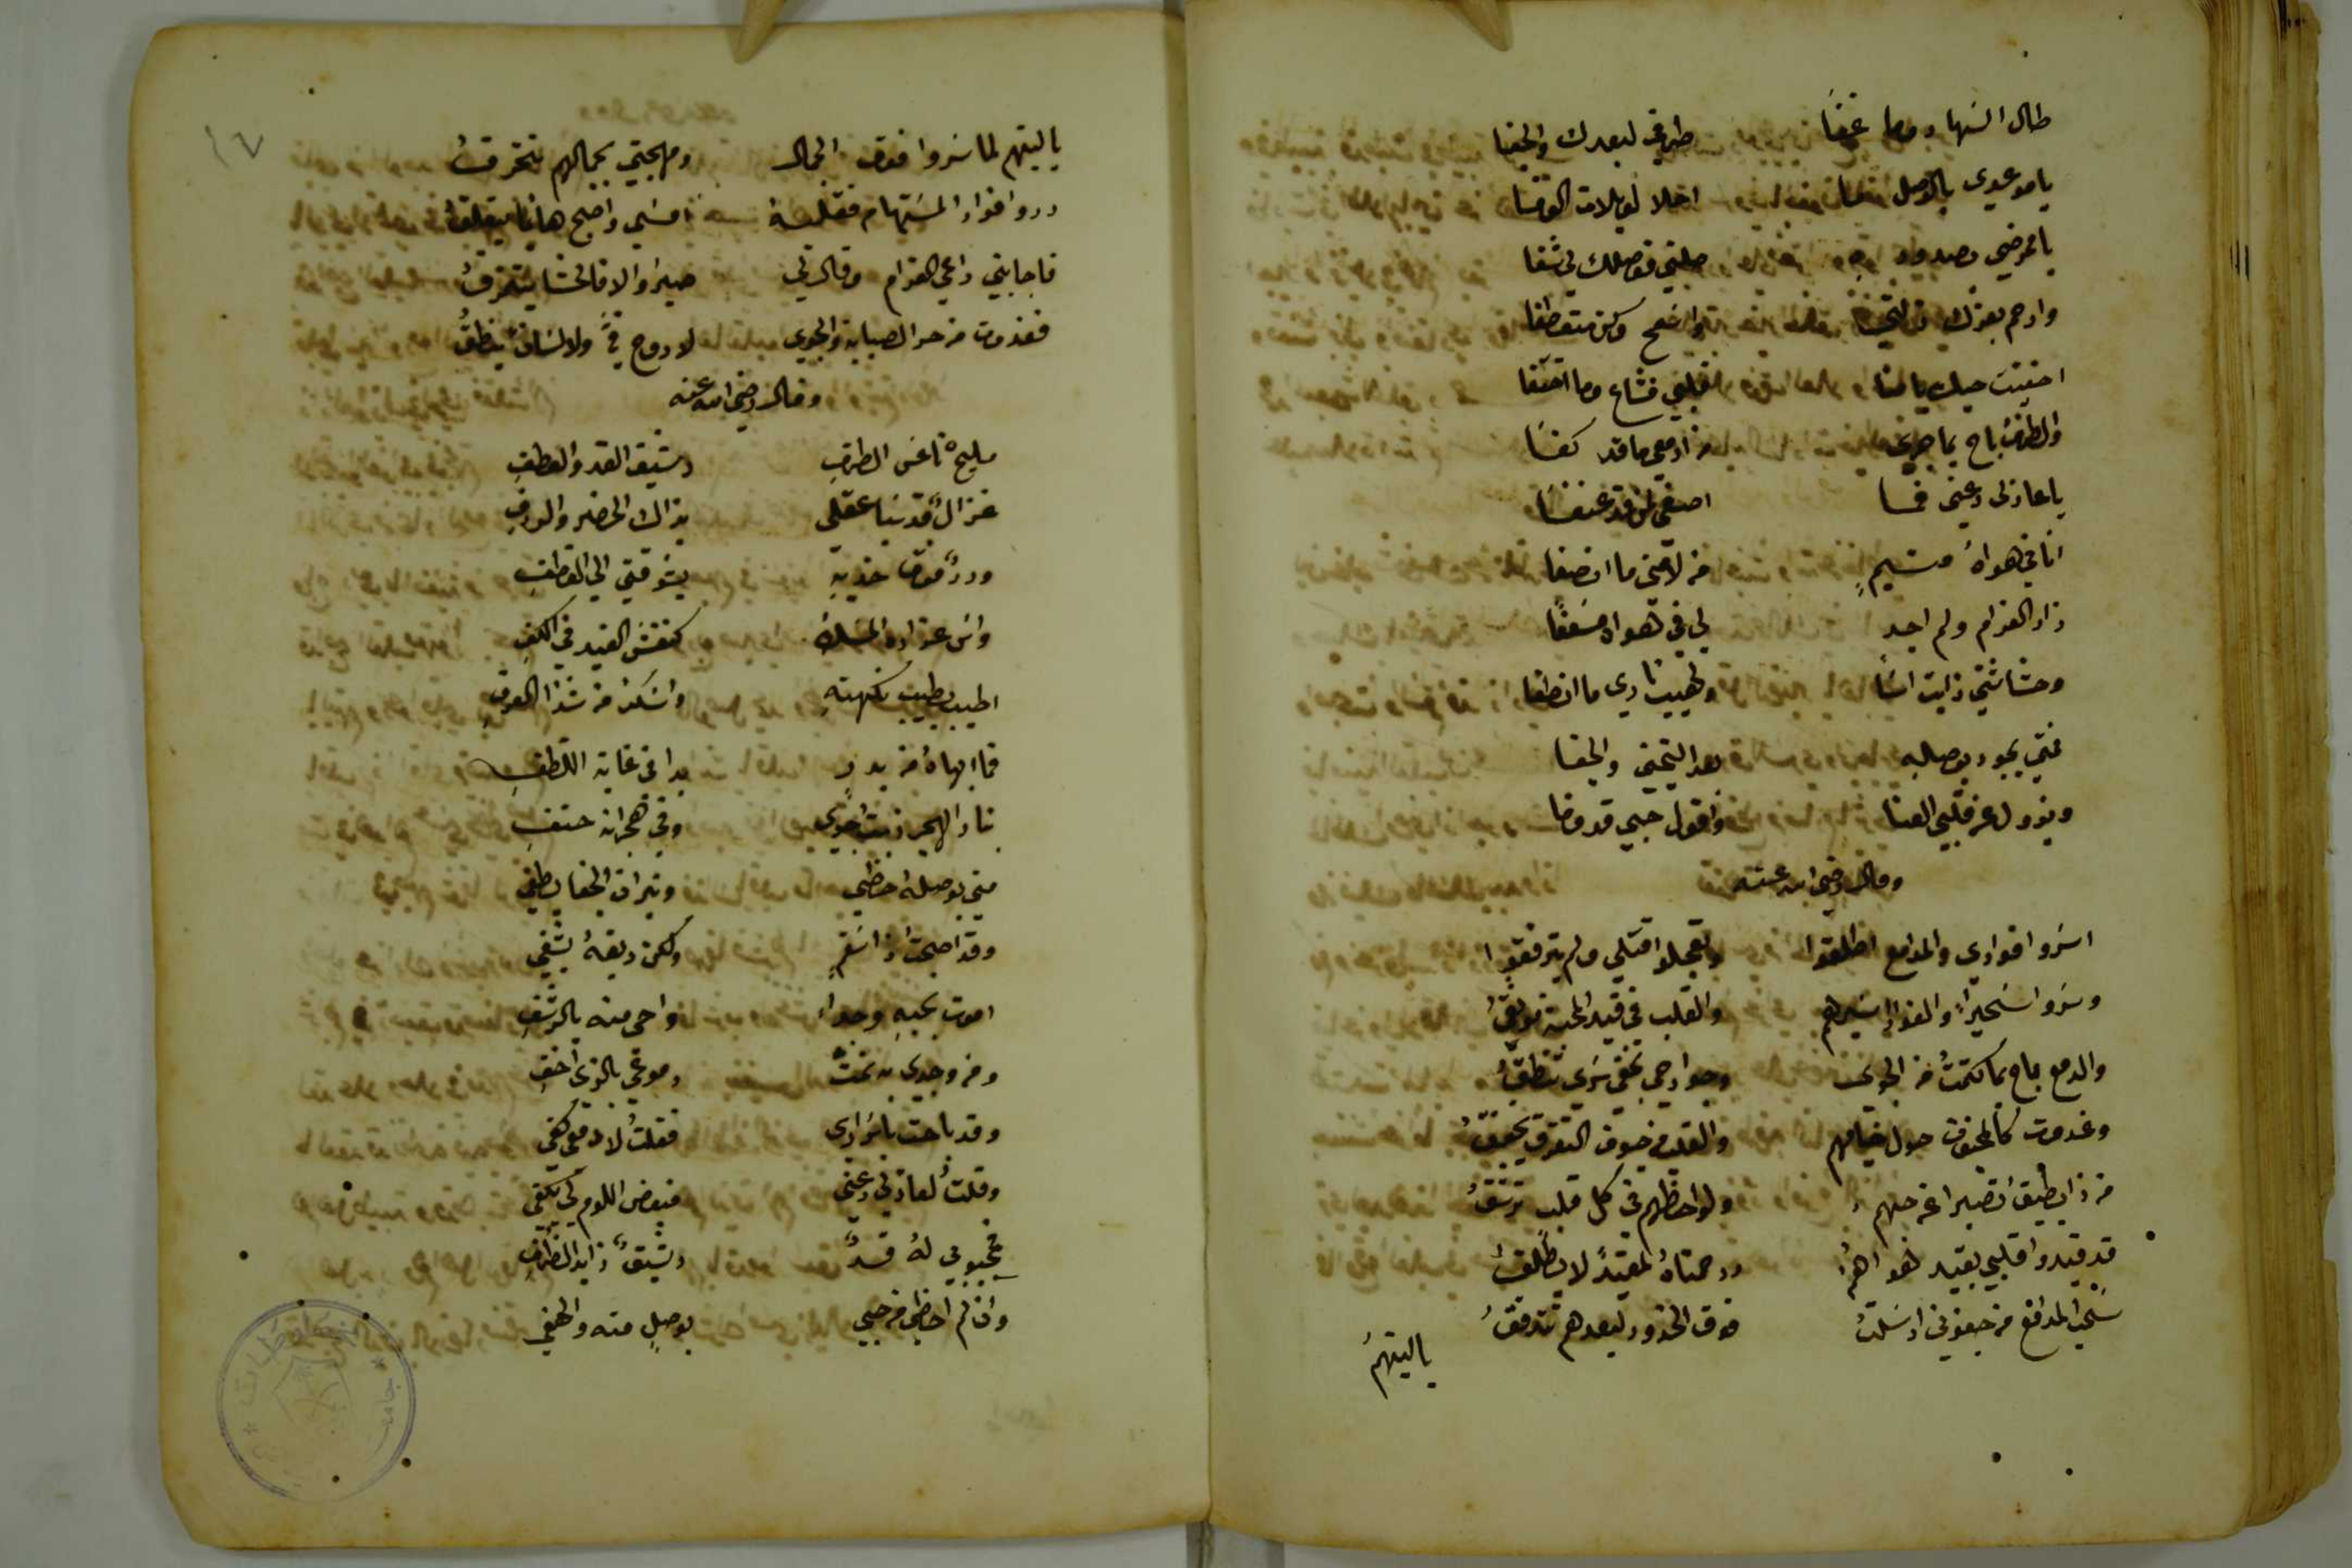 طال السهاد وما غفا طرفي لبعدك والجفا
يا موعدي بالوصل اخلا
يا ممرضي بصدوده صلني فوصلك لي شفا
وارحم بعزك ذلتي واسمح وكن متعطفا
اخفيت حبك يا منا قلبي فشاع وما اختفا
والطرف باح بما جرى من ادمعي ما قد كفا
يا عاذلي دعني فما اصغي لمن قد عنفا
انا في هواه متيم من لامني ما انصفا
زاد الغرام ولم اجد لي في هواه مسعفا
وحشاشتي ذابت اسا ولهيب ناري ما انطفا
فمتى يجود بوصله بعد التجني والجفا
ويزول عن قلبي العنا واقول حبي قد وفا
وقال رضي الله عنه
اسروا فوادي والمدامع اطلقوا وتعجلوا قتلي ولم يترفقوا
وسروا سحيرا والفواد اسيرهم والقلب في قيد المحبة موثق
والدمع باح بما كتمت من الجوى وجوارحي بخفي سري تنطق
وغدوت كالمجنون حول خيامهم والقلب من خوف التفرق يخفق
من ذا يطيق تصبرا عن حبهم ولواحظهم في كل قلب ترشق
قد قيدوا قلبي بقيد هواهم ورحمتاه لمقيد لا يطلق
سحب المدامع من جفوني ارسلت فوق الخدود لبعدهم تتدفق
ياليتهم
١٧
ياليتهم لما سروا فوق الجمال ومهجتي بجمالهم تتحرق
ردوا فواد المستهام فقلبه امسى واصبح هايما يتقلق
فاجابني داعي الغرام وقال لي صبرا والا فالحشا يتمزق
فغدوت من حر الصبابة والجوى لا روح في ولا لسان ينطق
وقال رضي الله عنه
مليح ناعس الطرف رشيق القد والعطف
غزال قد سبا عقلي بذاك الخصر والردف
وورد فوق خديه يشوقني الى القطف
واس عذاره المسك كنقش الغيد في الكف
اطيب بطيب نكهته واسكر من شذا العرف
فما ابهاه من بدر بدا في غاية اللطف
بنار الهجر ذبت جوى وفي هجرانه حتف
متى بوصله احظى ونيران الجفا يطفي
وقد اصبحت ذا سقم ولكن ريقه يشفي
اموت بحبه وجدا واحى منه بالرشف
ومن وجدي به نمت دموعي بالذي اخف
وقد باحت باسراري فقلت لادمعي كفي
وقلت لعاذلي دعني فبعض اللوم لي يكفي
فمحبوبي له قد رشيق زايد الظرف
وان لم احظى من حبي بوصل منه والهفي